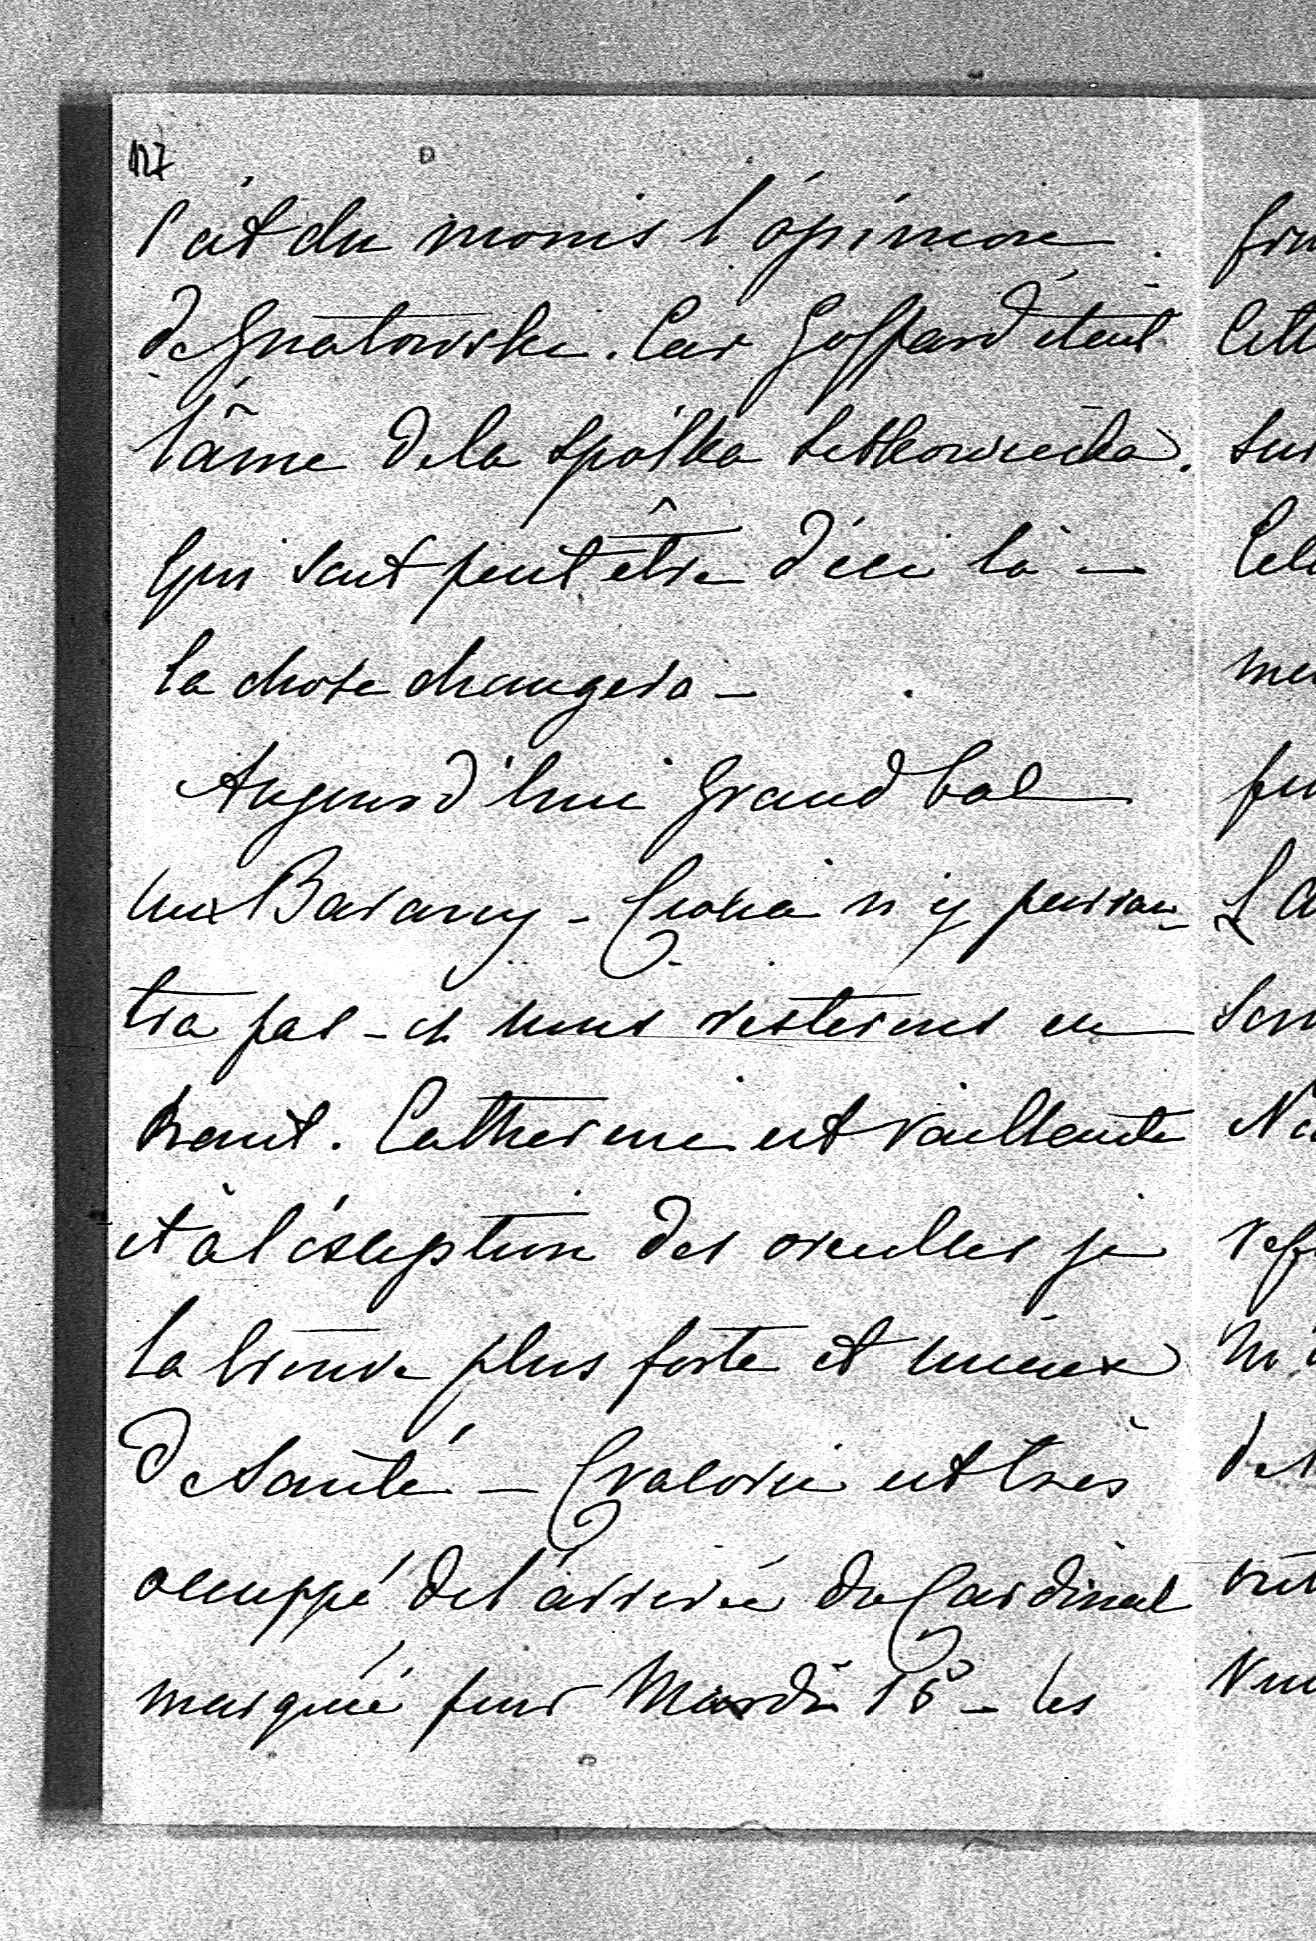 127
C'est du moins l'opinion
de Gnatowski. Car Goffard étant
l'âme de la Spółka Setkowiecka.
Qui sait peut être d'ici là –
la chose changera –
Aujourd'hui Grand bal
aux Barany – n'y parrai-
tra pas – et nous resterons en
haut. Catherine est vaillante
et à l'éxception des oreilles je
la trouve plus forte et mieux
de Santé – est très
occuppé de l'arrivée du Cardinal
marquée pour Mardi 15 – les